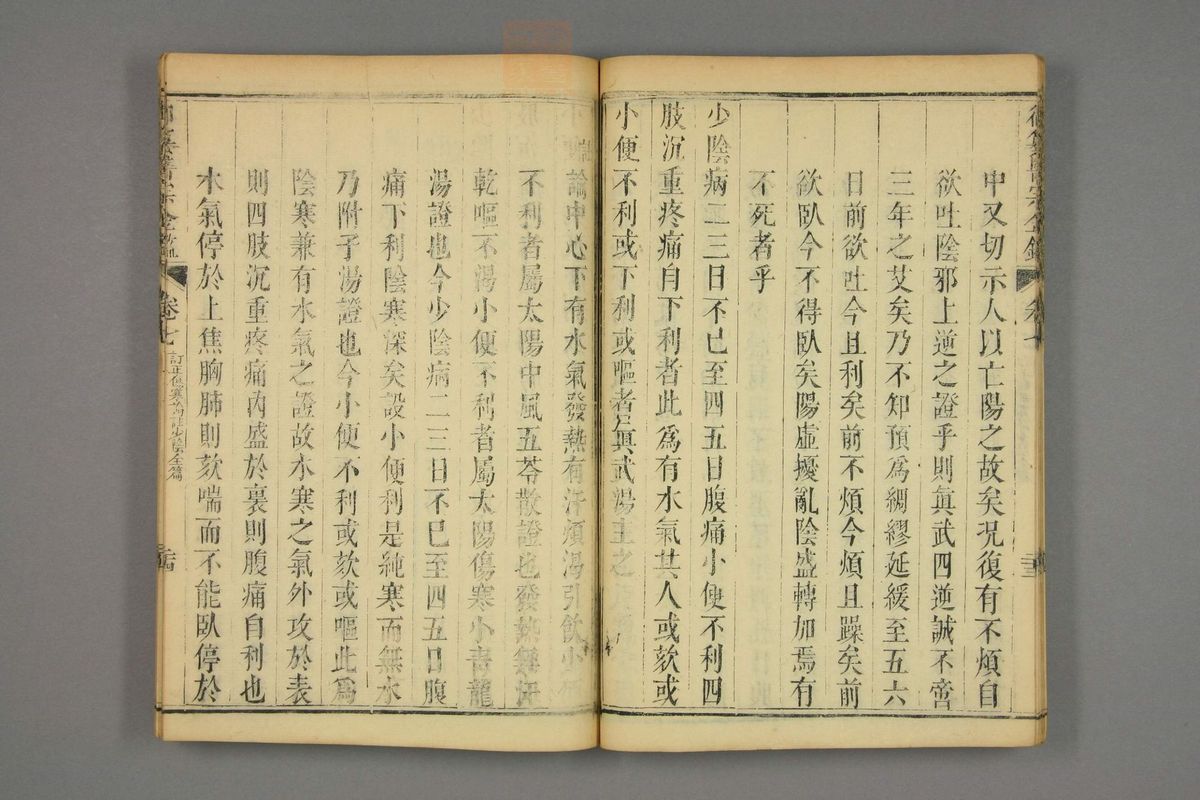 中又切示人以亡陽之故矣况復有不煩自
欲吐陰邪上逆之證乎則眞武四逆誠不啻
三年之艾矣乃不知預爲綢繆延緩至五六
日前欲吐今且利矣前不煩今煩且躁矣前
欲臥今不得臥矣陽虛擾亂陰盛轉加焉有
不死者乎
少陰病二三日不已至四五日腹痛小便不利四
肢沉重疼痛自下利者此爲有水氣其人或欬或
小便不利或下利或嘔者眞武湯主之
論中心下有水氣發熱有汗煩渴引飲小便
不利者屬太陽中風五苓散證也發熱無汗
乾嘔不渴小便不利者屬太陽傷寒小青龍
湯證也今少陰病二三日不已至四五日腹
痛下利陰寒深矣設小便利是純寒而無水
乃附子湯證也今小便不利或欬或嘔此爲
陰寒兼有水氣之證故水寒之氣外攻於表
則四肢沉重疼痛內盛於裏則腹痛自利也
水氣停於上焦胸肺則欬喘而不能臥停於
卷七